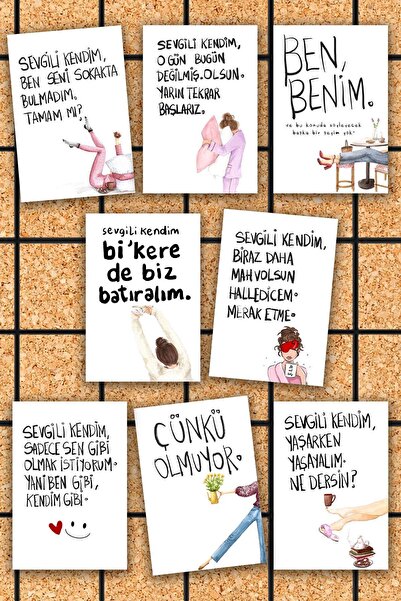 SEVGİLİ KENDİM,
BEN SENİ SOKAKTA
BULMADIM.
TAMAM MI?
SEVGİLİ KENDİM,
O GÜN BUGÜN
DEĞİLMİŞ. OLSUN.
YARIN TEKRAR
BAŞLARIZ.
BEN,
BENİM.
ve bu konuda söyleyecek
başka bir şeyim yok.
sevgili kendim
bi'kere
de biz
batıralım.
SEVGİLİ KENDİM,
BİRAZ DAHA
MAHVOLSUN
HALLEDİCEM.
MERAK ETME.
SEVGİLİ KENDİM,
SADECE SEN GİBİ
OLMAK İSTİYORUM.
YANİ BEN GİBİ,
KENDİM GİBİ.
ÇÜNKÜ
OLMUYOR.
SEVGİLİ KENDİM,
YAŞARKEN
YAŞAYALIM.
NE DERSİN?